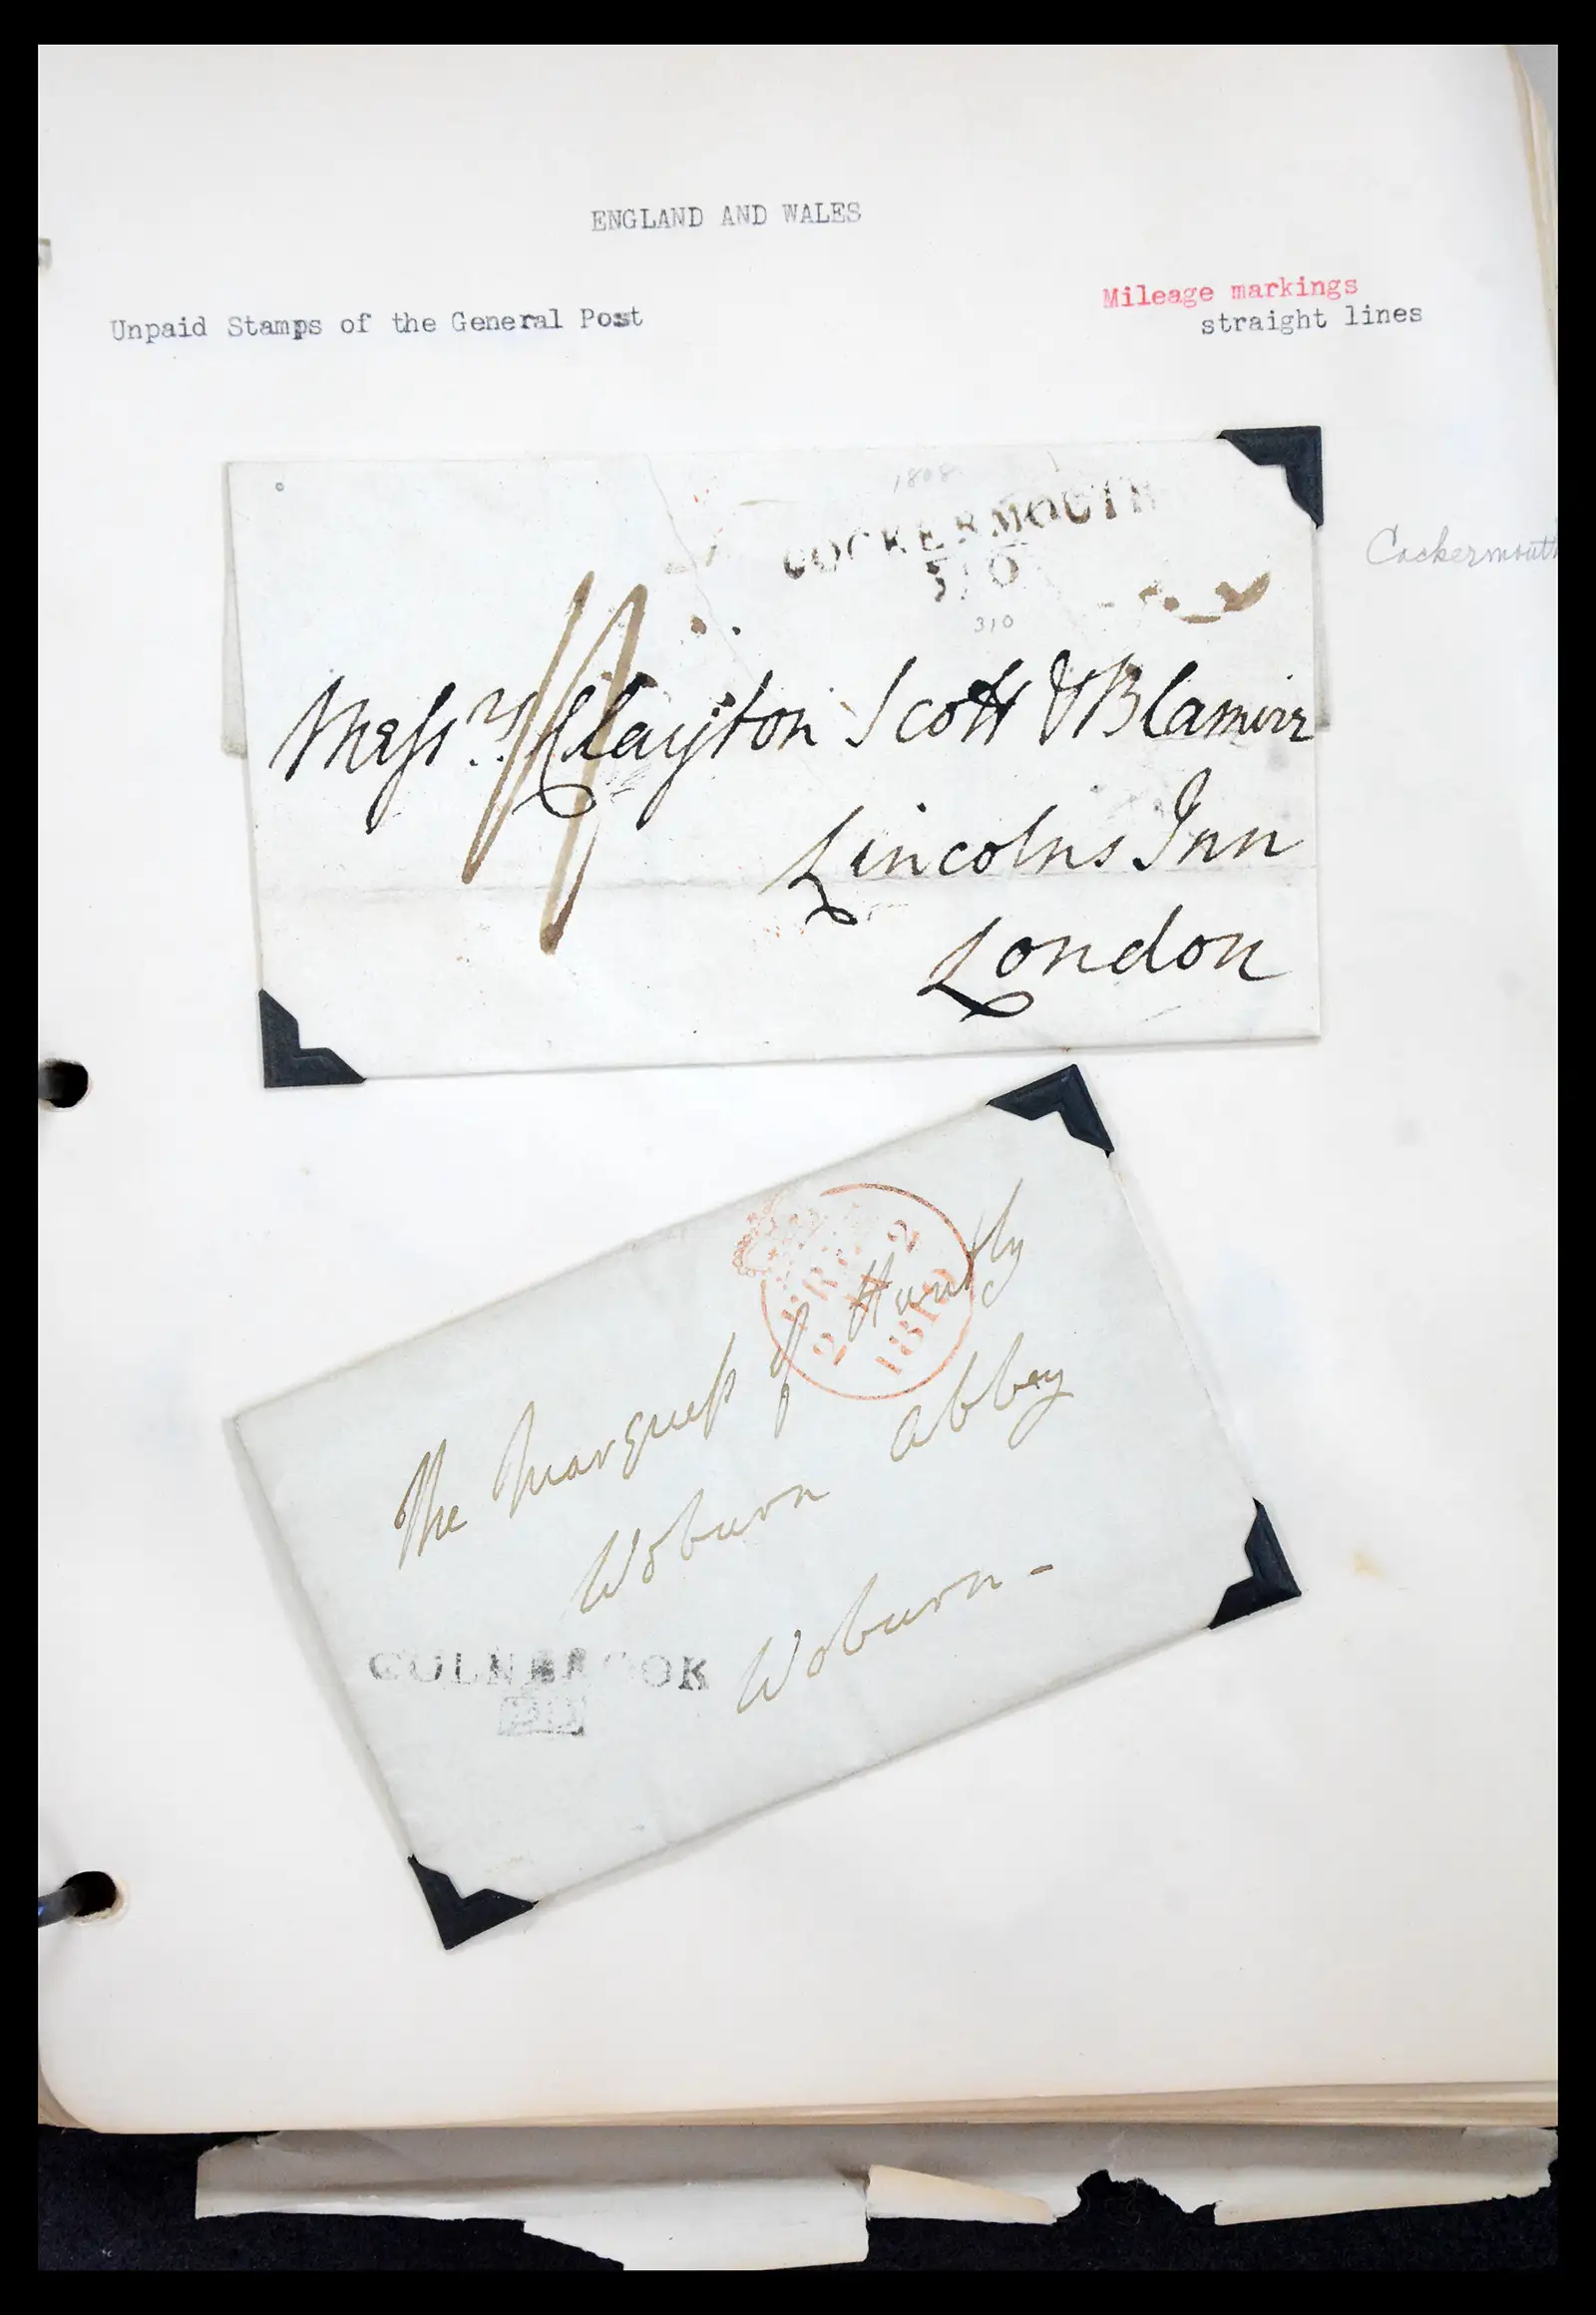 ENGLAND AND WALES
Unpaid Stamps of the General Post
Mileage markings
straight lines
1808
COCKERMOUTH
310
310
Cockermouth
Messrs Clayton Scott & Blamire
Lincolns Inn
London
2
2
1819
The Marquess of Huntly
Woburn Abbey
Woburn -
COLNBROOK